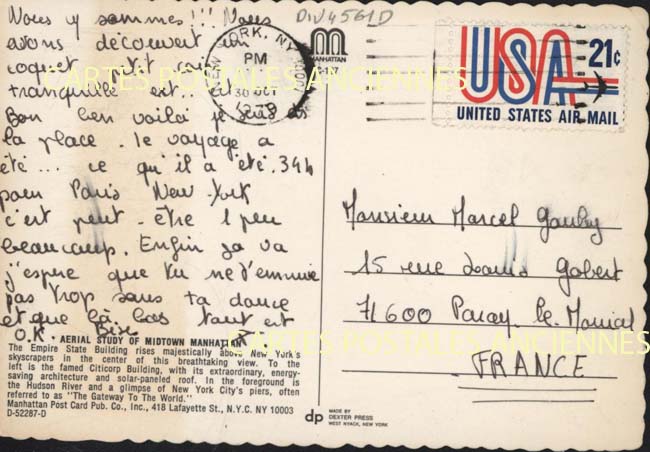 Nous y sommes!!! Nous
avons découvert un
coquet petit coin
tranquille est.. et
Bon ben voilà je suis as
la place. le voyage a
été... ce qu'il a été. 34h
pour Paris New York
c'est peut-être 1 peu
beaucoup. Enfin ça va
j'espère que tu ne t'ennuie
pas trop sans ta dance
et que là bas tout est
O.K. Bises
AERIAL STUDY OF MIDTOWN MANHATTAN
The Empire State Building rises majestically above New York's
skyscrapers in the center of this breathtaking view. To the
left is the famed Citicorp Building, with its extraordinary, energy-
saving architecture and solar-paneled roof. In the foreground is
the Hudson River and a glimpse of New York City's piers, often
referred to as "The Gateway To The World."
Manhattan Post Card Pub. Co., Inc., 418 Lafayette St., N.Y.C. NY 10003
D-52287-D
DIV4561D
NEW YORK, NY
PM
30
MANHATTAN
dp
MADE BY
DEXTER PRESS
WEST NYACK, NEW YORK
USA 21¢
UNITED STATES AIR MAIL
Monsieur Marcel
15 rue Louis Gabert
71600 Paray le Monial
FRANCE
CARTES POSTALES ANCIENNES
CARTES POSTALES ANCIENNES